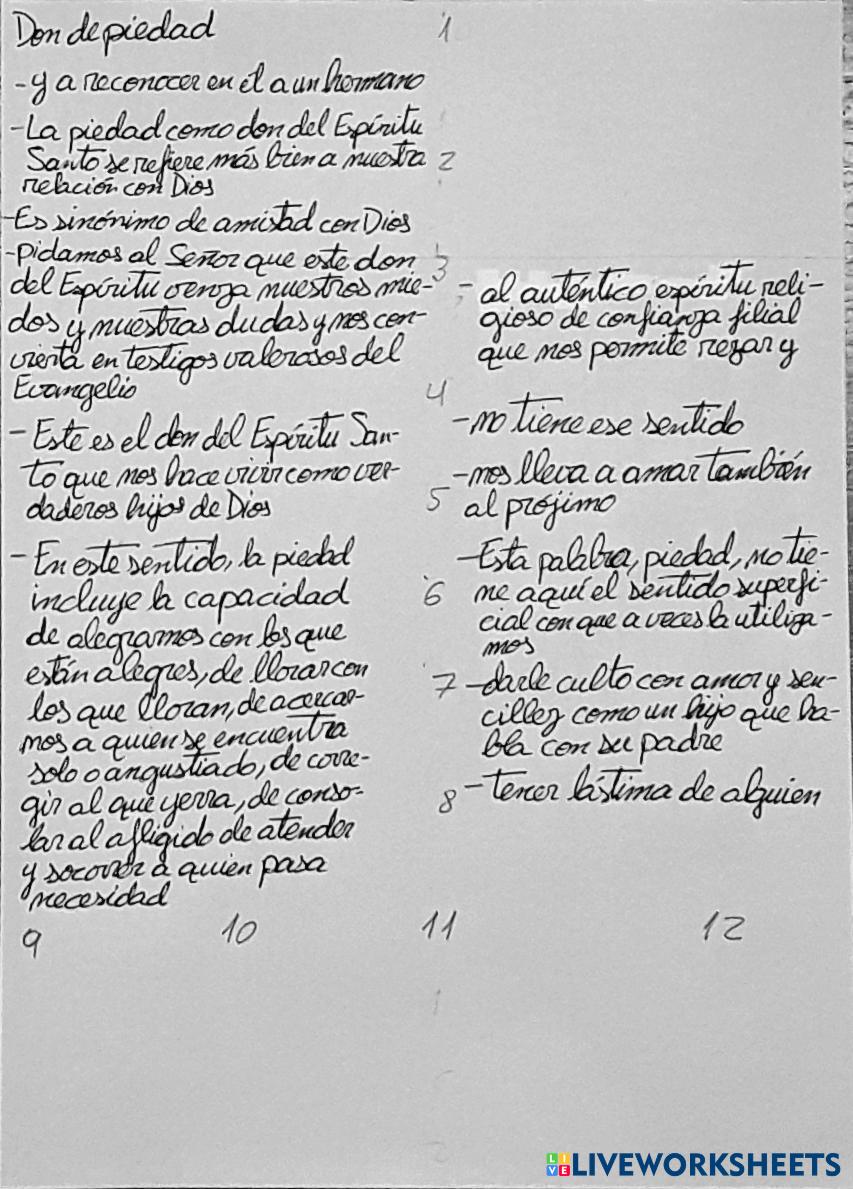 Don de piedad
1
- y a reconocer en él a un hermano
- La piedad como don del Espíritu
Santo se refiere más bien a nuestra
2
relación con Dios
- Es sinónimo de amistad con Dios
- Pidamos al Señor que este don
3
del Espíritu venza nuestros mie-
dos y nuestras dudas y nos con-
vierta en testigos valerosos del
Evangelio
4
- Este es el don del Espíritu San-
to que nos hace vivir como ver-
daderos hijos de Dios
5
- En este sentido, la piedad
incluye la capacidad
6
de alegrarnos con los que
están alegres, de llorar con
7
los que lloran, de acercar-
nos a quien se encuentra
solo o angustiado, de corre-
gir al que yerra, de conso-
8
lar al afligido de atender
y socorrer a quien pasa
necesidad
- al auténtico espíritu reli-
gioso de confianza filial
que nos permite rezar y
- no tiene ese sentido
- nos lleva a amar también
al prójimo
- Esta palabra, piedad, no tie-
ne aquí el sentido superfi-
cial con que a veces la utiliza-
mos
- darle culto con amor y sen-
cillez como un hijo que ha-
bla con su padre
- tener lástima de alguien
9 10 11 12
LIVEWORKSHEETS